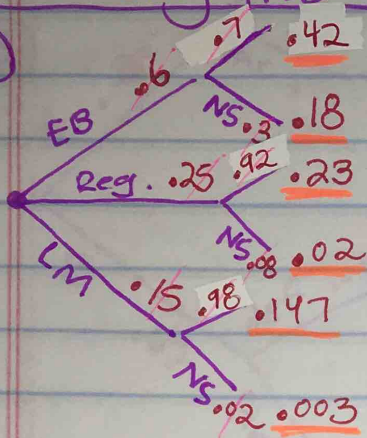 .7 .42
.6
NS .3 .18
EB
Reg. .25 .92 .23
NS .08 .02
LM .15 .98 .147
NS .02 .003